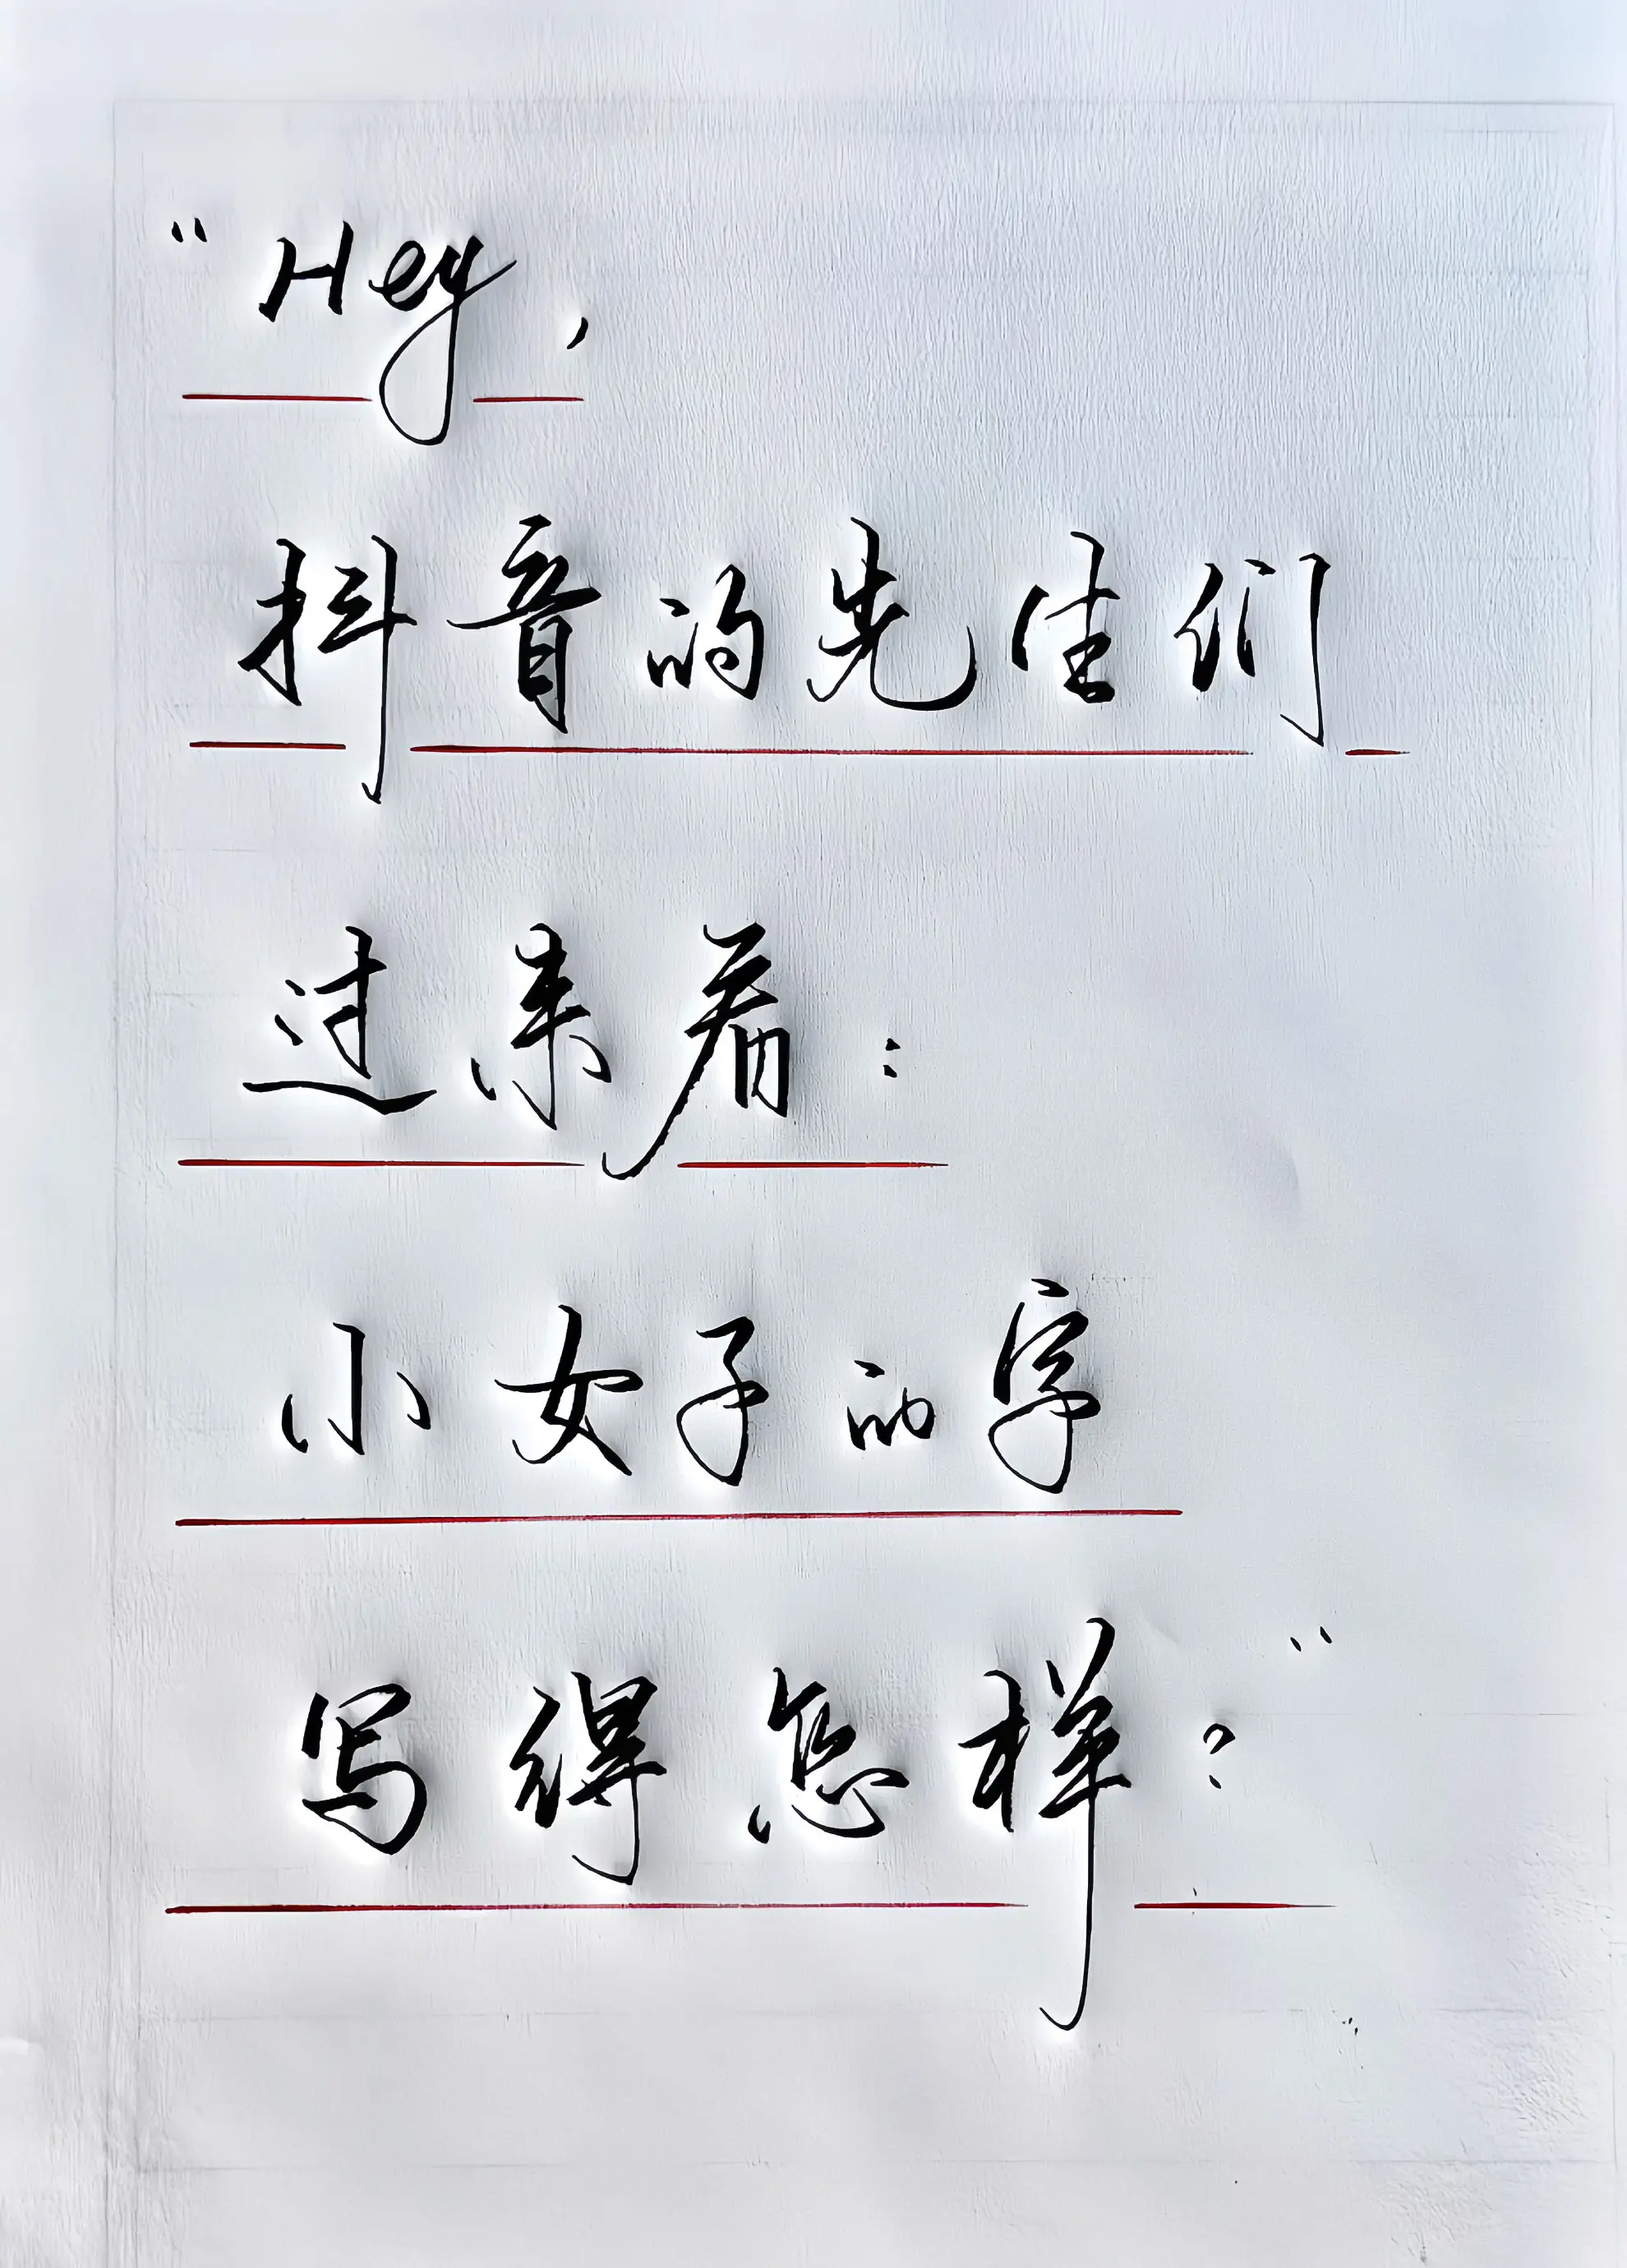 “Hey,
抖音的先生们
过来看:
小女子的字
写得怎样?”